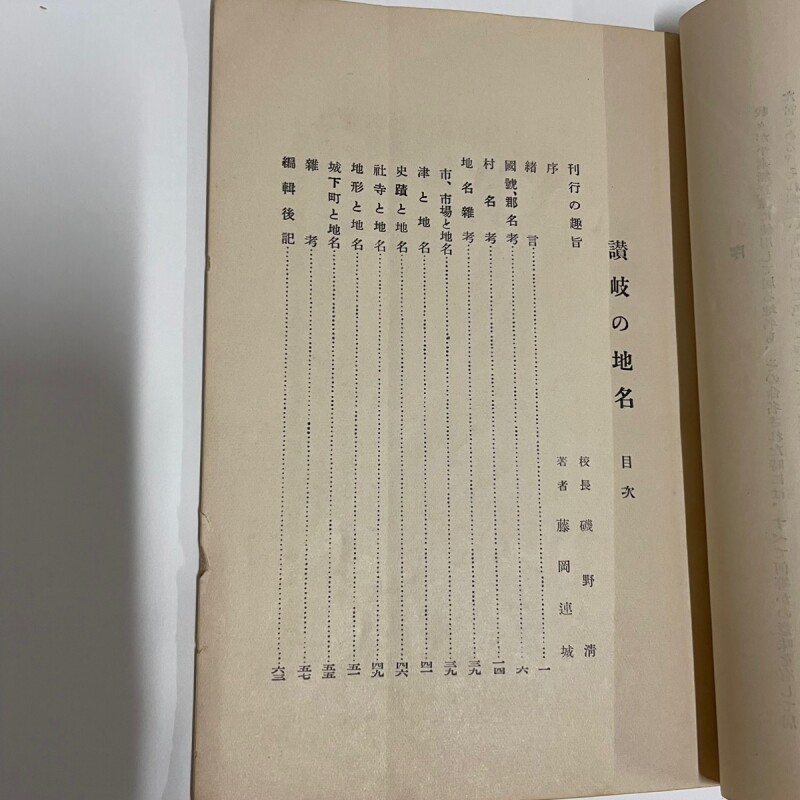 讃岐の地名　目次
刊行の趣旨　校長　磯野淸
序　著者　藤岡連城
緖言……一
國號、郡名考……六
村名考……一四
地名雜考……三九
市、市場と地名……三九
津と地名……四一
史蹟と地名……四六
社寺と地名……四九
地形と地名……五一
城下町と地名……五五
雜考……五七
編輯後記……六三